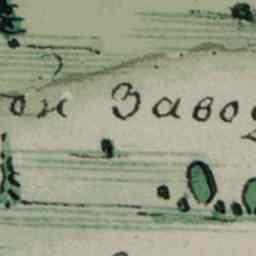 он Завод